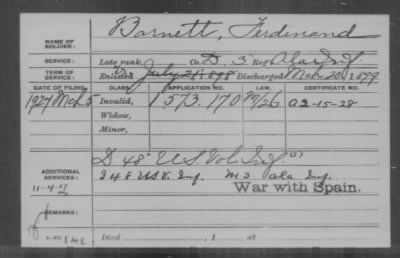 NAME OF SOLDIER: Barnett, Ferdinand
SERVICE: Late rank, Co. D, 3 Reg. Ala Inf
TERM OF SERVICE: Enlisted July 2, 1898 Discharged Mch 20, 1899
DATE OF FILING. CLASS. APPLICATION NO. LAW. CERTIFICATE NO.
1927 Mch 5 Invalid, 1573.170 A2-15-28
Widow,
Minor,
D 48" US Vol Inf
ADDITIONAL SERVICES: I 48 US V. Inf. M 3 Ala Inf.
War with Spain.
REMARKS:
Died , 1 , at